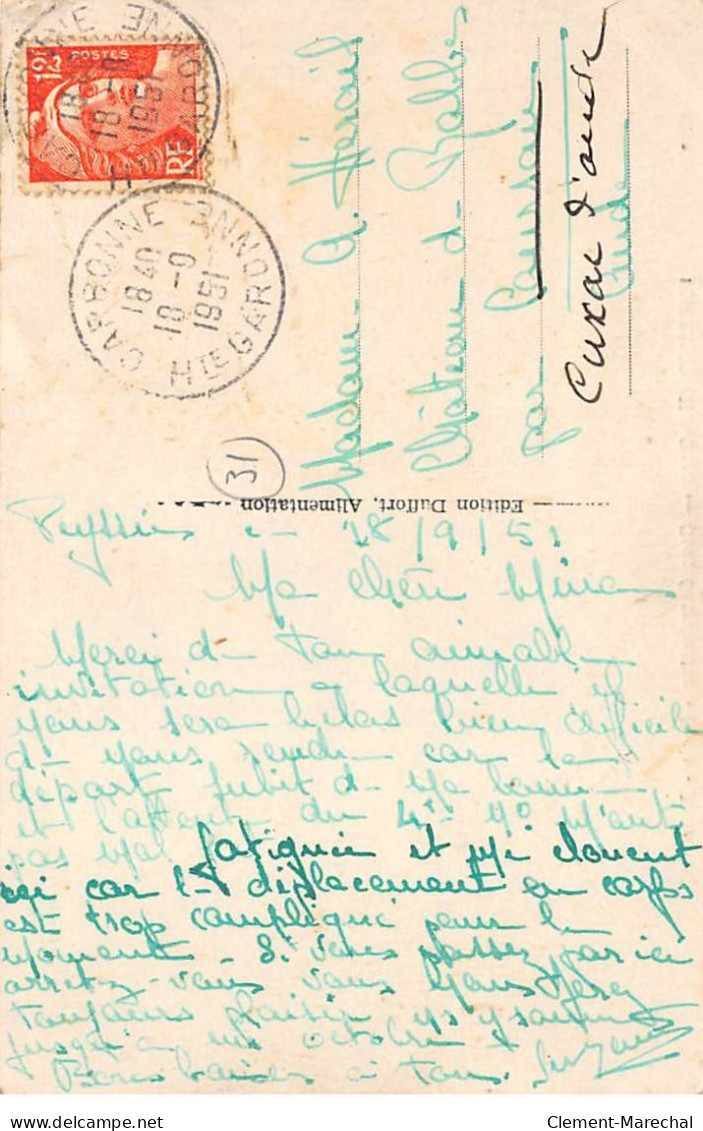 12F
POSTES
RF
CARBONNE
18 40
18 - 9
1951
HTE GARONNE
CARBONNE
18 40
18 - 9
1951
HTE GARONNE
31
Madame A.
Château de
par
Aude
Cuxac d'Aude
Edition Duffort, Alimentation
18/9/51
Ma chère Mina
Merci de ton aimable
invitation a laquelle il
nous sera helas bien difficile
de nous rendre car le
départ subit de Ma
et l'attente du 4e No M'ont
pas Mal fatiguée et Me clouent
ici car le déplacement en corps
est trop compliqué pour le
Moment. Si vous passez par ici
arretez-vous vous Nous ferez
toujours plaisir ns y sommes
jusqu'a octobre
Bons baisers a tous.
Clement-Marechal